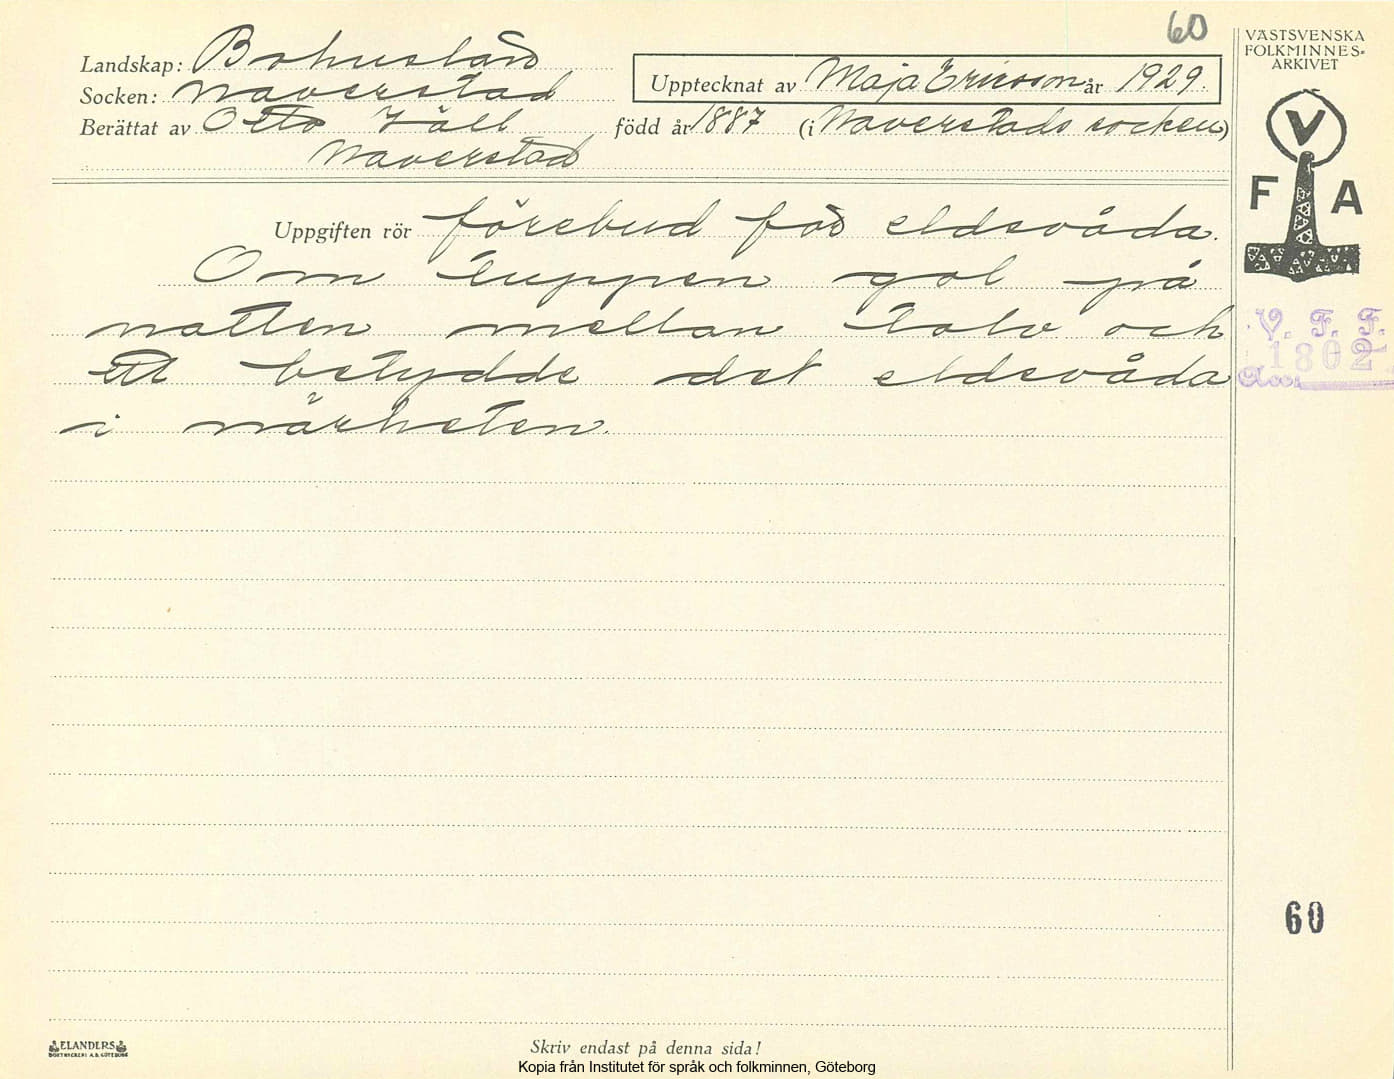 60
Landskap: Bohuslän
Socken: Naverstad
Upptecknat av Maja Ericson år 1929
Berättat av Otto Käll född år 1887 (i Naverstads socken)
Naverstad
VÄSTSVENSKA
FOLKMINNES-
ARKIVET
V
F A
Uppgiften rör förebud för eldsvåda.
Om tuppen gol på
natten mellan tolv och
ett betydde det eldsvåda
i närheten.
V. F. F.
1802
Acc.
60
ELANDERS
BOKTRYCKERI A.B. GÖTEBORG
Skriv endast på denna sida!
Kopia från Institutet för språk och folkminnen, Göteborg